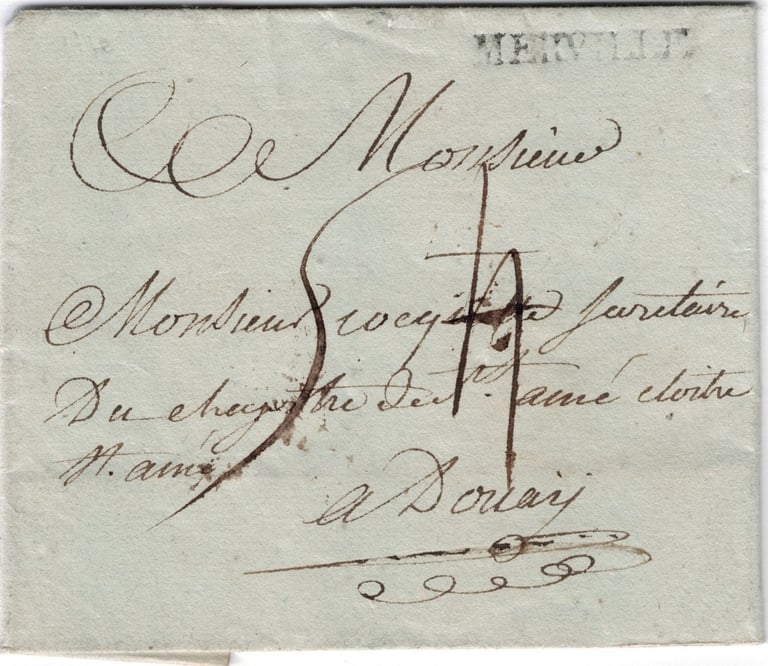 MERVILLE
Monsieur
Monsieur secretaire
Du chapittre de St. amé cloitre
St. amé
a Douay